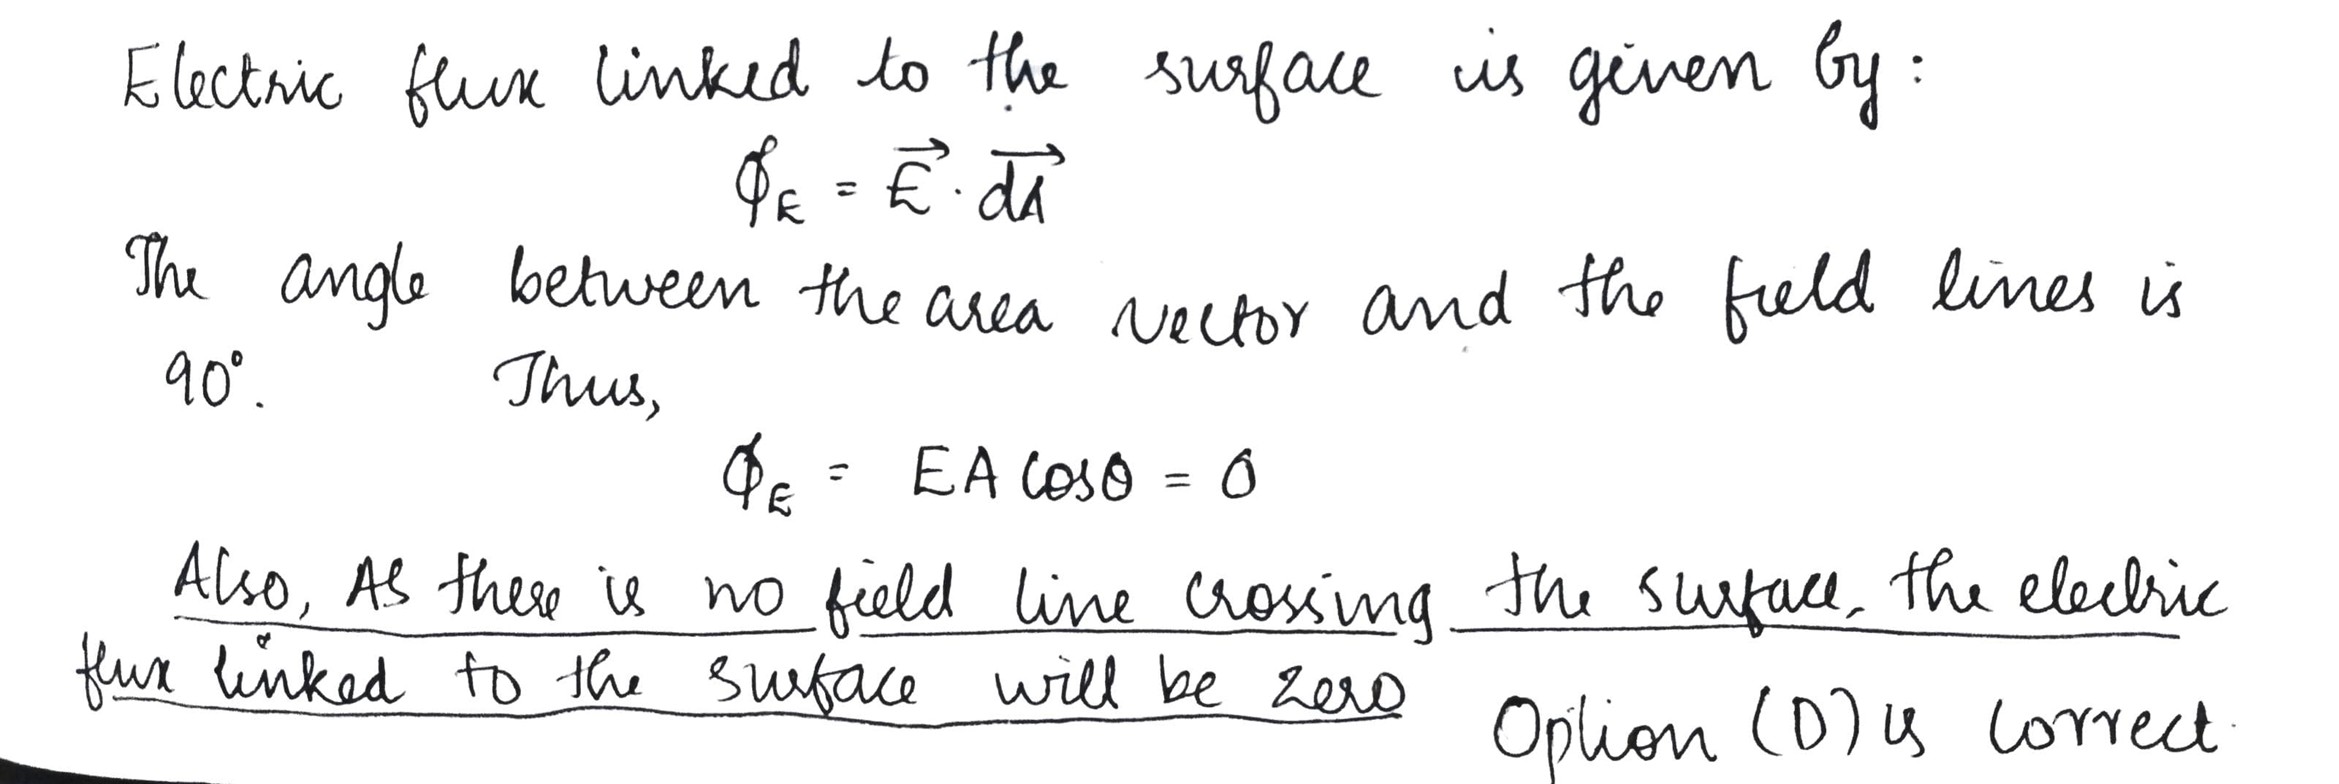 Electric flux linked to the surface is given by:
ϕ_E = E⃗ · dA⃗
The angle between the area vector and the field lines is
90°. Thus,
ϕ_E = EA cosθ = 0
Also, As there is no field line crossing the surface, the electric
flux linked to the surface will be zero
Option (D) is correct.